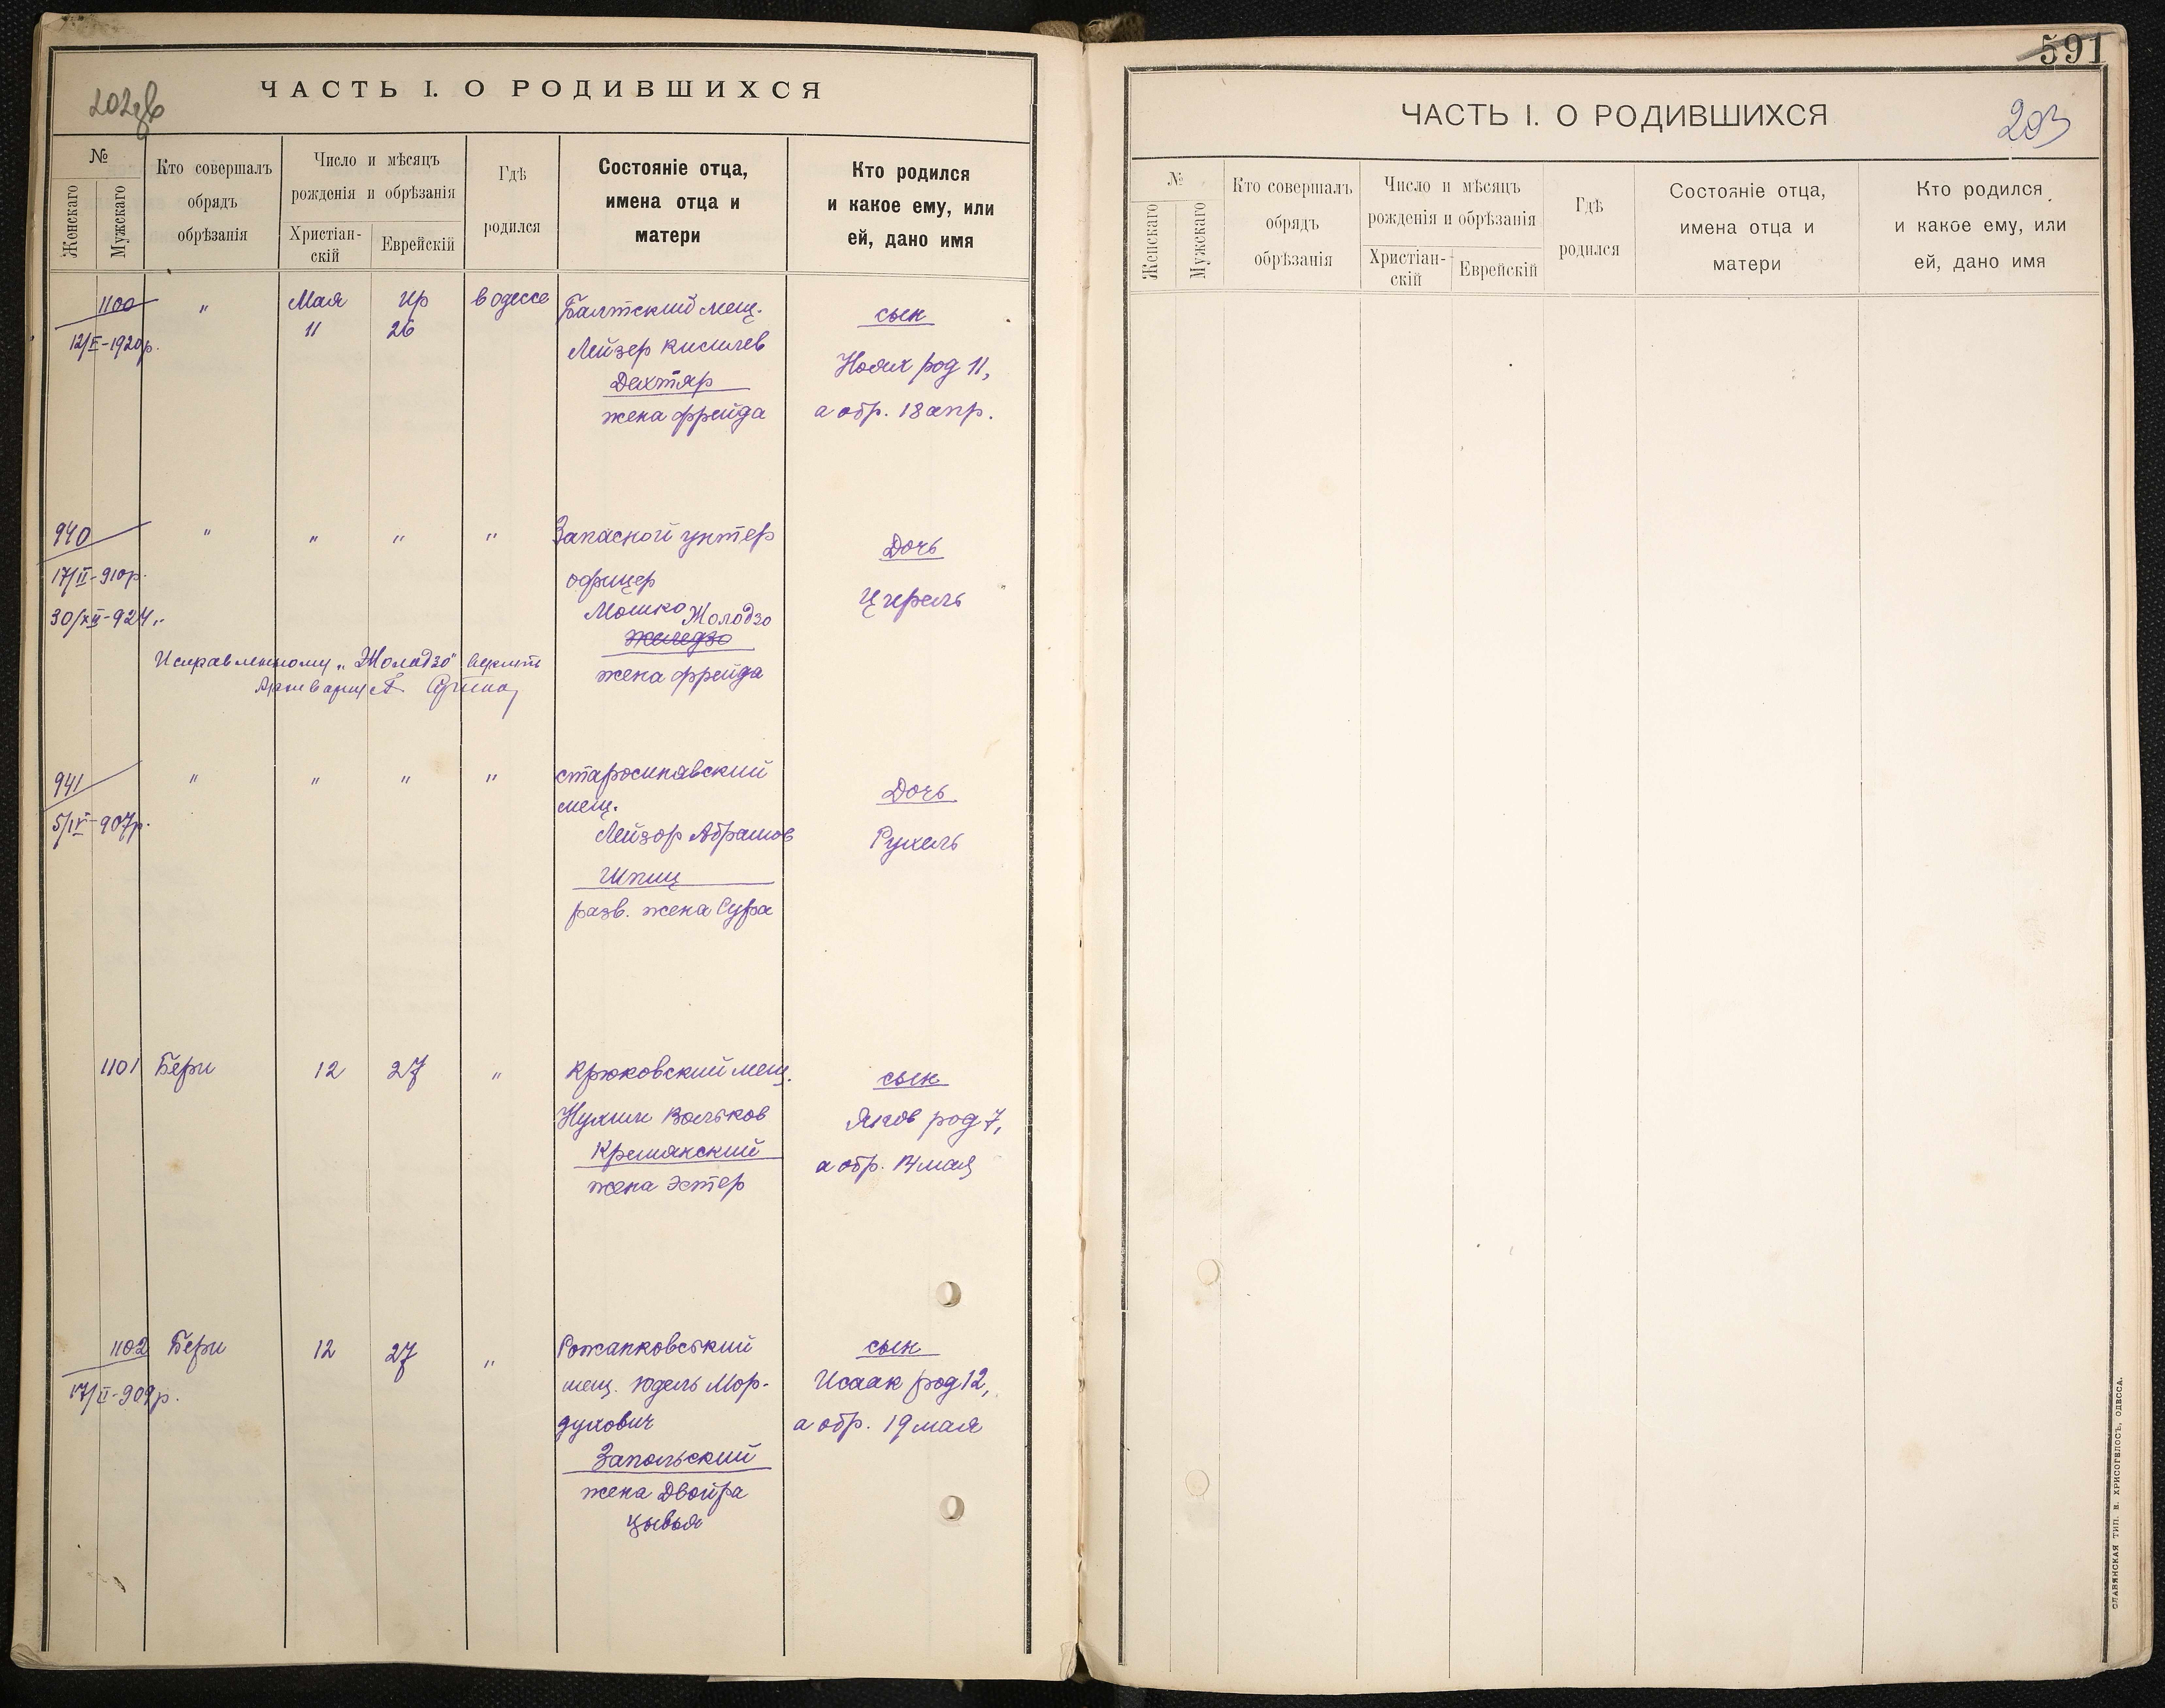 202об
ЧАСТЬ I. О РОДИВШИХСЯ
№
Женскаго
Мужскаго
Кто совершалъ
обрядъ
обрѣзанія
Число и мѣсяцъ
рожденія и обрѣзанія
Христіан-
скій
Еврейскій
Гдѣ
родился
Состояніе отца,
имена отца и
матери
Кто родился
и какое ему, или
ей, дано имя
1100 " Мая Ир в одессе Балтский мещ. сын
11 26
12/V-1920р.
Лейзер
Дехтяр
жена фрейда
Ноях род 11,
а обр. 18 апр.
940 " " " " Запасной унтер Дочь
17/II-910р. офицер
30/XII-924
Мошко Жолодзо
Железо
жена фрейда
Цирель
Исправленному „Жолодзо" верить
Архивариус
941 " " " " старосинявский Дочь
мещ.
5/IV-907р.
Лейзор Абрамов
Шпиц
разв. жена Сура
Рухель
1101 Бери 12 27 " Крюковский мещ. сын
Нухим Вольков Яков род 7,
Кремянский
а обр. 14 мая
жена Эстер
1102 Бери 12 27 " Рожанковський сын
17/II-909р. мещ. Юдель Мор- Исаак род 12,
духович а обр. 19 мая
Запольский
жена Двойра
Цывья
591
ЧАСТЬ I. О РОДИВШИХСЯ
203
№
Женскаго
Мужскаго
Кто совершалъ
обрядъ
обрѣзанія
Число и мѣсяцъ
рожденія и обрѣзанія
Христіан-
скій
Еврейскій
Гдѣ
родился
Состояніе отца,
имена отца и
матери
Кто родился
и какое ему, или
ей, дано имя
СЛАВЯНСКАЯ ТИП. Н. ХРИСОГЕЛОСЪ, ОДЕССА.